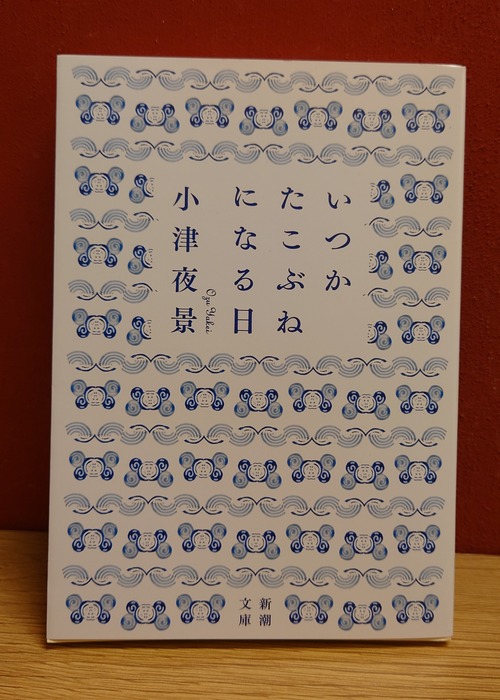 いつか
たこぶね
になる日
小津夜景
Ozu Yakei
新潮
文庫